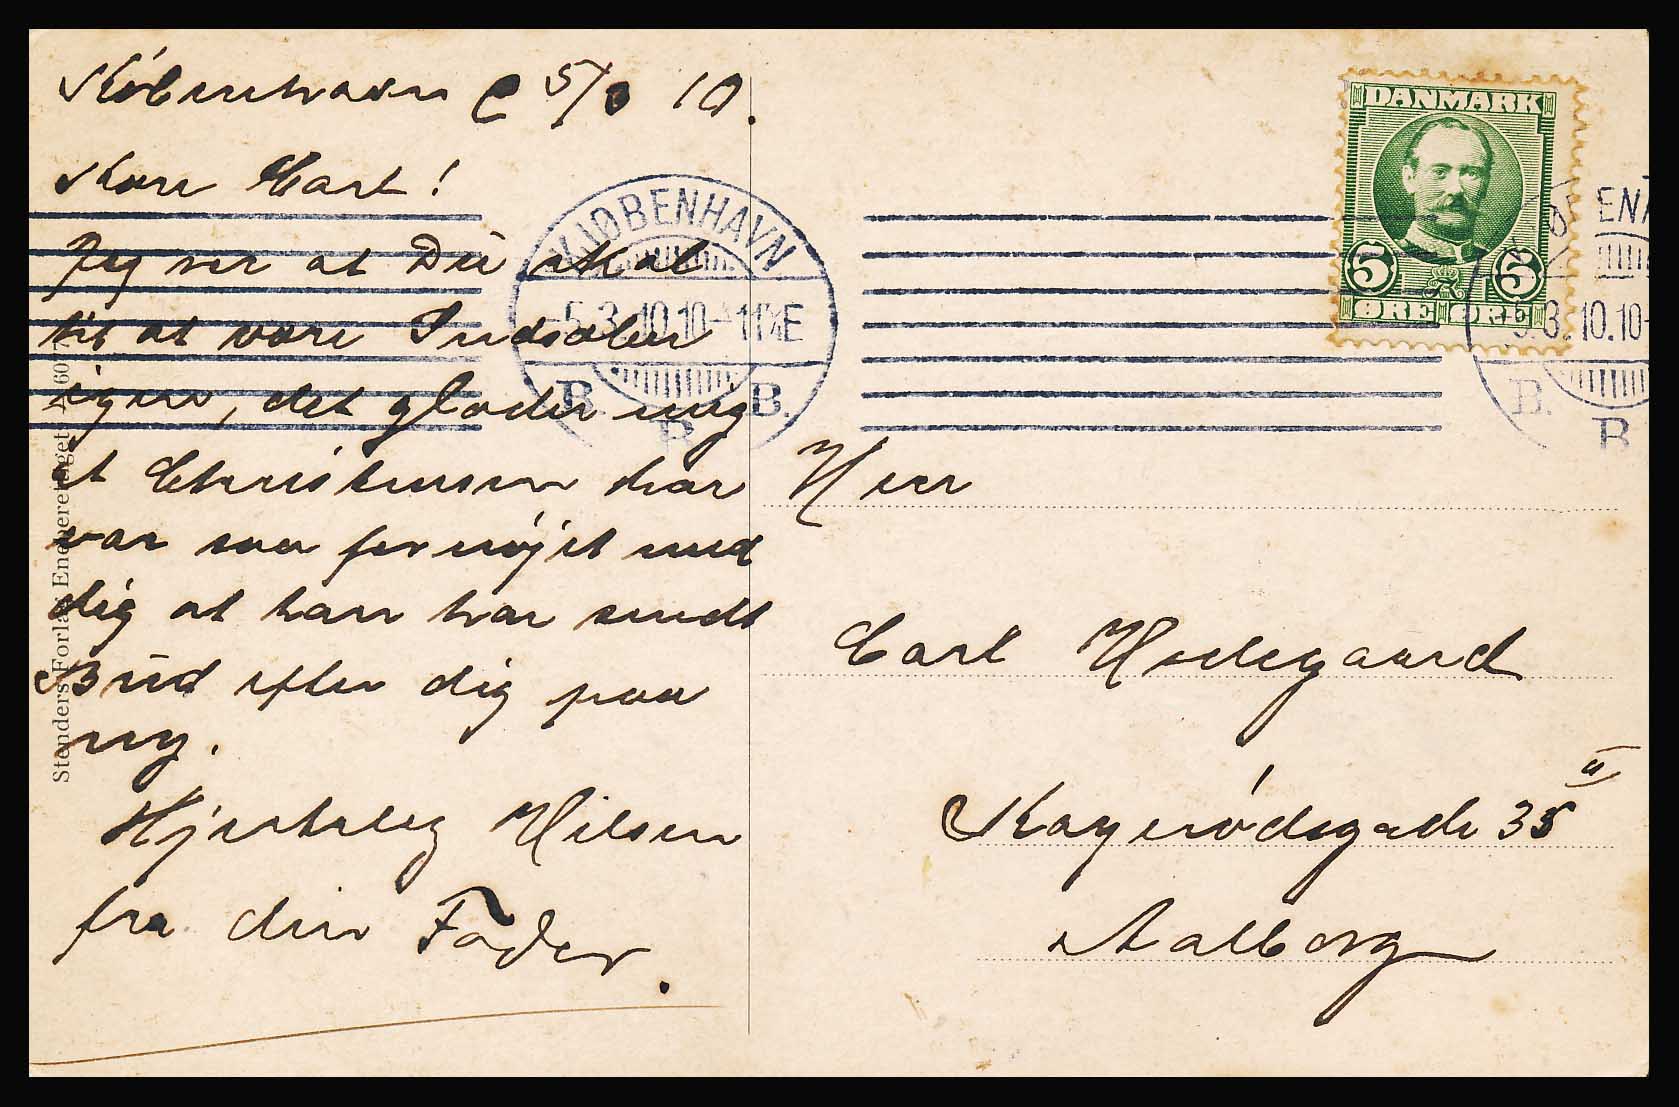 København C 5/3 10.
Kære Carl!
Jeg ser at Du skal
til at være Indsælen
igen, det glæder mig
at Christensen har
var saa fornøjet med
dig at han har sendt
Bud efter dig paa
ny.
Hjertelig Hilsen
fra din Fader.
Stenders Forlag Eneberettiget
KJØBENHAVN
5.3.10.10-11 E
B. B.
B
DANMARK
5 5
ØRE ØRE
ENH
5.3.10.10-
B.
B
Herr
Carl Hedegaard
Kayerødsgade 35 II
Aalborg